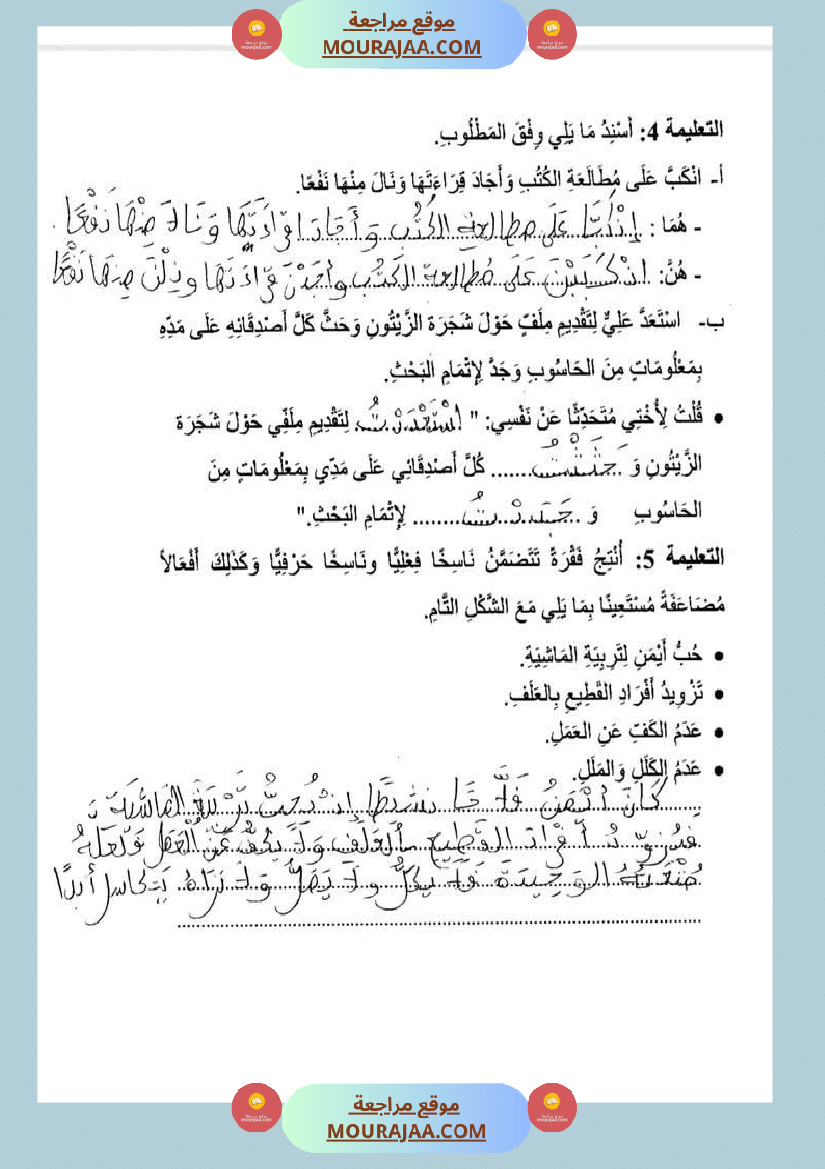 موقع مراجعة
MOURAJAA.COM
التعليمة 4: أُسْنِدُ مَا يَلِي وِفْقَ المَطْلُوبِ.
أ- انْكَبَّ عَلَى مُطَالَعَةِ الكُتُبِ وَأَجَادَ قِرَاءَتَهَا وَنَالَ مِنْهَا نَفْعًا.
- هُمَا : إنْكَبَّا عَلَى مطالعة الكُتُب وَأَجَادَا قِرَاءَتَهَا وَنَالَا مِنْهَا نَفْعًا
- هُنَّ: انْكَبَبْنَ عَلَى مُطالعة الكُتُب وأجَدْنَ قرَاءَتَهَا ونِلْنَ مِنهَا نَفْعًا
ب- اسْتَعَدَّ عَلِيٌّ لِتَقْدِيمِ مِلَفٍّ حَوْلَ شَجَرَةِ الزَّيْتُونِ وَحَثَّ كُلَّ أَصْدِقَائِهِ عَلَى مَدِّهِ
بِمَعْلُومَاتٍ مِنَ الحَاسُوبِ وَجَدَّ لِإِتْمَامِ البَحْثِ.
• قُلْتُ لِأُخْتِي مُتَحَدِّثًا عَنْ نَفْسِي: " اسْتَعْدَدْتُ لِتَقْدِيمِ مِلَفِّي حَوْلَ شَجَرَةِ
الزَّيْتُونِ وَ حَثَثْتُ ....... كُلَّ أَصْدِقَائِي عَلَى مَدِّي بِمَعْلُومَاتٍ مِنَ
الحَاسُوبِ وَ ..جَدَدْتُ........ لِإِتْمَامِ البَحْثِ."
التعليمة 5: أُنْتِجُ فَقْرَةً تَتَضَمَّنُ نَاسِخًا فِعْلِيًّا ونَاسِخًا حَرْفِيًّا وَكَذَلِكَ أَفْعَالاً
مُضَاعَفَةً مُسْتَعِينًا بِمَا يَلِي مَعَ الشَّكْلِ التَّامِ.
• حُبُّ أَيْمَنِ لِتَرْبِيَةِ المَاشِيَةِ.
• تَزْوِيدُ أَفْرَادِ القَطِيعِ بِالعَلَفِ.
• عَدَمُ الكَفِّ عَنِ العَمَلِ.
• عَدَمُ الكَلَلِ وَالمَلَلِ.
كَانَ أَيْمَنُ فَلَّاحًا نَشِيطًا إنهُ يُحِبُّ تَرْبِيَةَ المَاشِيَةَ
أفْرَادَ القَطِيع بالعَلَفِ وَلَا يَكُفُّ عَنْ العَمَلِ وَلَعَلَّهُ
مُتْعَتُهُ الوَحِيدَةَ فَلَا يَكلُّ ولَا يَمَلُّ وَلَا نَرَاهُ يَتَكاسل أبدًا
موقع مراجعة
MOURAJAA.COM